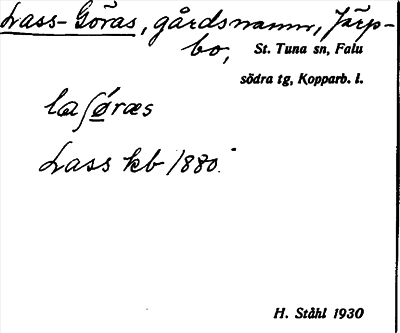 Lass-Göras, gårdsnamn, Järp-
bo, St. Tuna sn, Falu
södra tg, Kopparb. l.
laʃøræs
Lass kb 1880.
H. Ståhl 1930